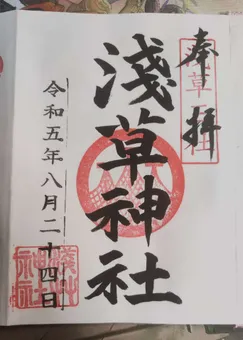 奉拝
淺草神社
令和五年八月二十四日